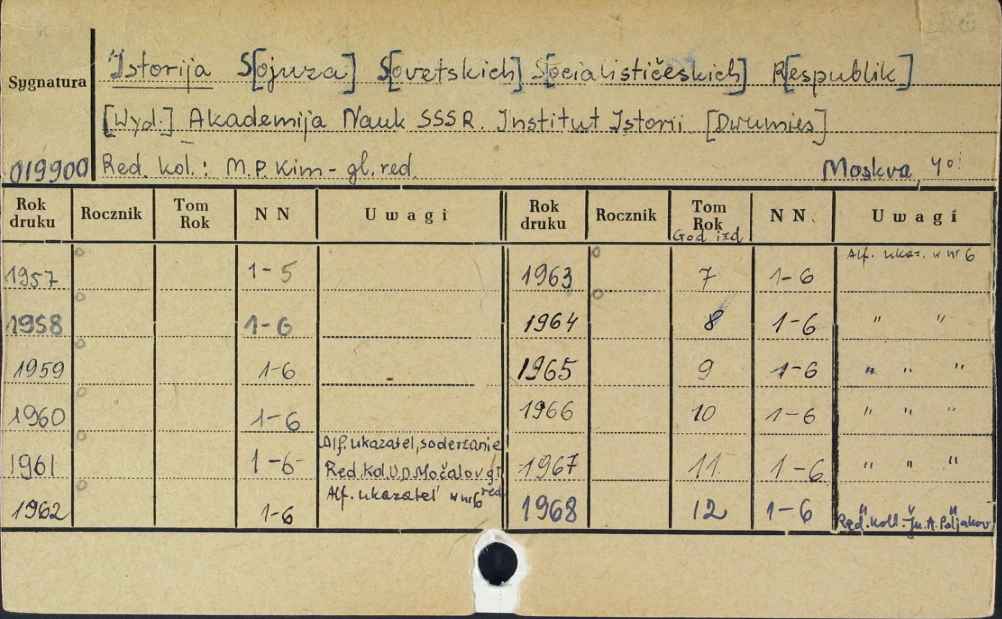 Istorija S[ojuza] S[ovetskich] S[ocialističeskich] R[espublik]
Sygnatura
[Wyd.] Akademija Nauk SSSR. Institut Istorii [Dwumies]
019900 Red. kol.: M.P. Kim - gl. red. Moskva, 4°
Rok druku Rocznik Tom Rok NN Uwagi Rok druku Rocznik Tom Rok NN. Uwagi
God izd
1957 1-5 1963 7 1-6 Alf. ukaz. w nr 6
1958 1-6 1964 8 1-6 " "
1959 1-6 1965 9 1-6 " " "
1960 1-6 1966 10 1-6 " " "
1961 1-6 Alf. ukazatel, soderzanie 1967 11 1-6 " " "
Red. Kol. V.D. Močalov gł. red
1962 1-6 Alf. ukazatel' w nr 6 1968 12 1-6 " " "
Red. Koll. - Ju. A. Poljakov